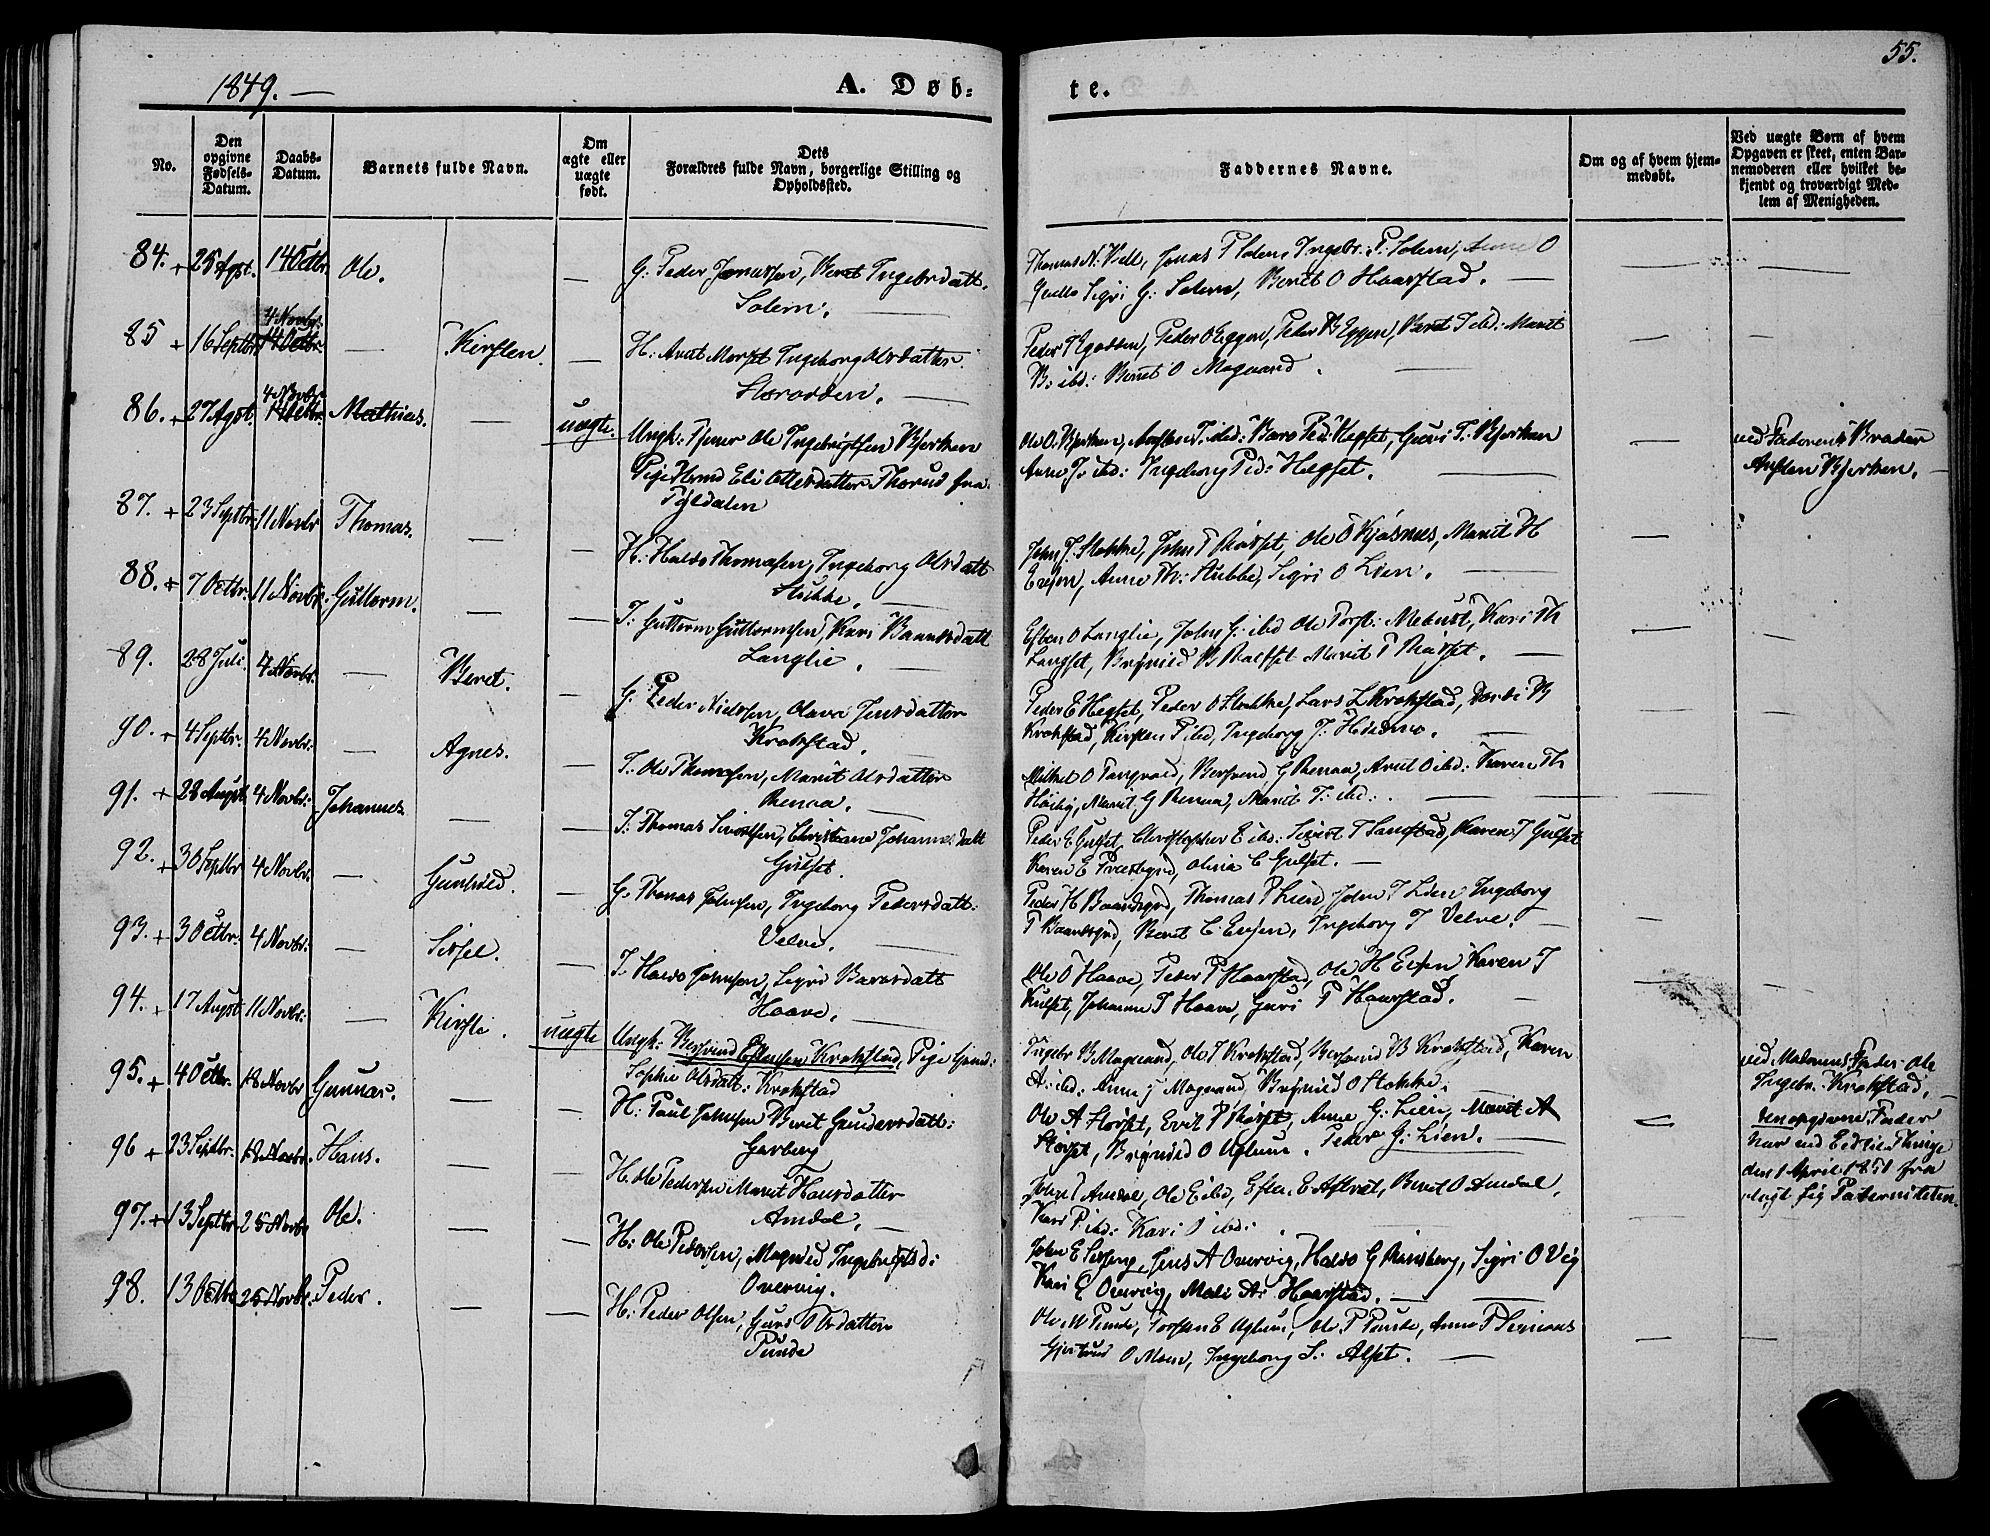 1849. —
A. Døb-
te.
55.
No.
Den opgivne Fødsels-Datum.
Daabs-Datum.
Barnets fulde Navn.
Om ægte eller uægte født.
Dets Forældres fulde Navn, borgerlige Stilling og Opholdssted.
Faddernes Navne.
Om og af hvem hjem-medøbt.
Ved uægte Børn af hvem Opgaven er skeet, enten Bar-nemoderen eller hvilket be-kjendt og troværdigt Med-lem af Menigheden.
84. + 25 Agst. 14 Octbr. Ole. — G: Peder Jonassen, Beret Ingebrdatt.
Solem. —
Thomas N: Vell, Jonas P Solem, Ingebr: P: Solem, Anne O
Sigri G: Solem, Beret O Haarstad. —
4 Novbr.
85 + 16 Septbr 14 Octbr. — Kirsten. — H: Arnt Morset Ingeborg Olsdatter.
Storodden. —
Peder O Eggen, Peder B Eggen, Beret T ibd: Marit
B: ibd: Beret O Moguand. —
4 Novbr.
86. + 27 Agst. 14 Octbr. Mathias. — uægte. Ungk: Tjener Ole Ingebrigtsen Bjerken
Pige Eli Olsdatter Thorud fra
Tyldalen
Ole O. Bjerken, Austen T. ibd: Baro Ped: Hegset, Guri T: Bjerken
Anne J: ibd: Ingeborg Ped: Hegset. —
ved Faderens Broder
Austen Bjerken. —
87. + 23 Septbr. 11 Novbr. Thomas. — — H: Haldo Thomassen, Ingeborg Olsdatt
Stokke. —
John J. Stokke, John T Røsset, Ole O Kjøsnes, Marit H
Evjen, Anne Th: Stubbe, Sigri O Lien. —
88. + 7 Octbr. 11 Novbr. Guttorm. — — I: Guttorm Guttormsen, Kari Baardsdatt
Langlie. —
Esten O Langlie, John G: ibd Ole Torst: Mebust, Kari Th
Langset, Brynild B Marit T Røsset. —
89. 28 Juli. 4 Novbr. — Beret. — G: Peder Nielsen, Olava Jensdatter
Krokstad. —
Peder E Hegset, Peder O Stokke, Lars L Krokstad, B
Krokstad, Kirsten P ibd, Ingeborg J: Hidemo. —
90. + 4 Septbr. 4 Novbr. — Agnes. — I: Ole Thomsen, Marit Olsdatter
Renaa. —
Mikkel O Tangvold, Bersvend G Renaa, Arnt O ibd: Karen Th
Høiby, Marit G Renaa, Marit T: ibd: —
91. + 28 August 4 Novbr. Johannes. — — I: Thomas Sivertsen, Christiane Johannesdatt
Gulset.
Peder E Gulset, Christopher E ibd: Sivert T Langstad, Karen T Gulset
Karen E Præstegrd, Olina C Gulset. —
92. + 30 Septbr 4 Novbr. — Gunhild. — G: Thomas Johnsen, Ingeborg Pedersdatt:
Velve. —
Peder H Baardsgrd, Thomas P Lien, John T Lien Ingeborg
T Baardsgrd, Beret C Evjen, Ingeborg T Velve. —
93. + 3 Octbr. 4 Novbr. — Sissel. — I: Haldo Johnsen, Sigri Baardsdatt
Haave. —
Ole O Haave, Peder P Haarstad, Ole H Evjen Karen T
Kulset, Johanne T Haave, Guri P Haarstad. —
94. + 17 August 11 Novbr. — Kirsti. uægte Ungk: Bersvend Estensen Krokstad, Pige
Sophie Olsdatt: Krokstad
Ingebr B Moguand, Ole I Krokstad, Bersvend B Krokstad, Karen
A: ibd: Anne J Moguand, Brynild O Stokke. —
ved Moderens Fader Ole
Ingebr. Krokstad. —
den opgivne Fader
har ved Eed til Thinge
den 1 April 1851 fra
lagt sig Paterniteten.
95. + 4 Octbr. 18 Novbr. Gunnar. — — H: Paul Johnsen Beret Gundersdatt:
Garberg
Ole A Storset, Erik P Røsset, Anne G: Lien, Marit A
Storset, Brynild O Uglum. Peder G: Lien. —
96 + 23 Septbr. 18 Novbr. Hans. — — H: Ole Pedersen Marit Hansdatter
Amdal. —
John T Amdal, Ole E ibd, Esten E Aftret, Beret O Amdal,
Kari P. ibd: Kari O ibd: —
97. + 13 Septbr. 25 Novbr Ole. — — H: Ole Pedersen, Magnild Ingebrigtsd:
Overvig.
John E Selseng, Jens A Overvig, Haldo G Rønsberg, Sigri O Vig
Kari E Overvig, Mali A: Haarstad. —
98. 13 Octbr. 25 Novbr. Peder. — — H: Peder Olsen, Guri Olsdatter
Punde
Ole M Punde, Torsten E Uglum, Ole P Punde, Anne P
Gjertrud O Moen, Ingeborg S: Alset. —